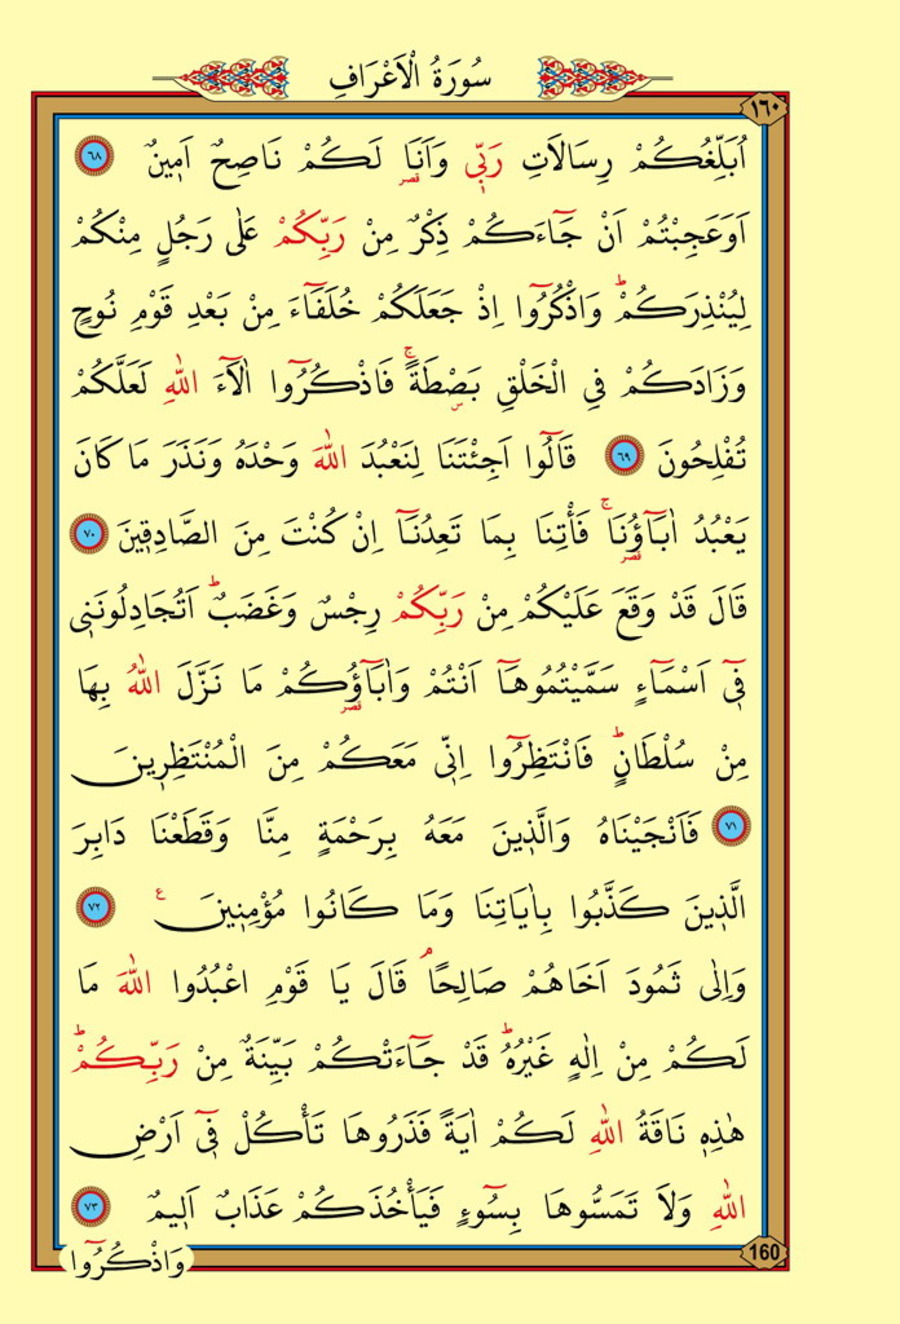 سُورَةُ الْاَعْرَافِ
١٦٠
اُبَلِّغُكُمْ رِسَالَاتِ رَبّ۪ي وَاَنَا۬ لَكُمْ نَاصِحٌ اَم۪ينٌ ٦٨
قصر
اَوَعَجِبْتُمْ اَنْ جَٓاءَكُمْ ذِكْرٌ مِنْ رَبِّكُمْ عَلٰى رَجُلٍ مِنْكُمْ
لِيُنْذِرَكُمْۜ وَاذْكُرُٓوا اِذْ جَعَلَكُمْ خُلَفَٓاءَ مِنْ بَعْدِ قَوْمِ نُوحٍ
وَزَادَكُمْ فِي الْخَلْقِ بَصْۣطَةًۚ فَاذْكُرُٓوا اٰلَٓاءَ اللّٰهِ لَعَلَّكُمْ
تُفْلِحُونَ ٦٩ قَالُٓوا اَجِئْتَنَا لِنَعْبُدَ اللّٰهَ وَحْدَهُ وَنَذَرَ مَا كَانَ
يَعْبُدُ اٰبَٓاؤُ۬نَاۚ فَأْتِنَا بِمَا تَعِدُنَٓا اِنْ كُنْتَ مِنَ الصَّادِق۪ينَ ٧٠
قصر
قَالَ قَدْ وَقَعَ عَلَيْكُمْ مِنْ رَبِّكُمْ رِجْسٌ وَغَضَبٌۜ اَتُجَادِلُونَن۪ي
ف۪ٓي اَسْمَٓاءٍ سَمَّيْتُمُوهَٓا اَنْتُمْ وَاٰبَٓاؤُ۬كُمْ مَا نَزَّلَ اللّٰهُ بِهَا
قصر
مِنْ سُلْطَانٍۜ فَانْتَظِرُٓوا اِنّ۪ي مَعَكُمْ مِنَ الْمُنْتَظِر۪ينَ
٧١ فَاَنْجَيْنَاهُ وَالَّذ۪ينَ مَعَهُ بِرَحْمَةٍ مِنَّا وَقَطَعْنَا دَابِرَ
الَّذ۪ينَ كَذَّبُوا بِاٰيَاتِنَا وَمَا كَانُوا مُؤْمِن۪ينَ ع ٧٢
وَاِلٰى ثَمُودَ اَخَاهُمْ صَالِحًاۢ قَالَ يَا قَوْمِ اعْبُدُوا اللّٰهَ مَا
لَكُمْ مِنْ اِلٰهٍ غَيْرُهُۜ قَدْ جَٓاءَتْكُمْ بَيِّنَةٌ مِنْ رَبِّكُمْۜ
هٰذِه۪ نَاقَةُ اللّٰهِ لَكُمْ اٰيَةً فَذَرُوهَا تَأْكُلْ ف۪ٓي اَرْضِ
اللّٰهِ وَلَا تَمَسُّوهَا بِسُٓوءٍ فَيَأْخُذَكُمْ عَذَابٌ اَل۪يمٌ ٧٣
160
وَاذْكُرُٓوا